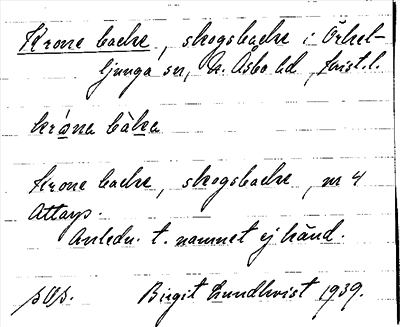 Krone backe, skogsbacke i Örkel-
ljunga sn, N. Åsbo hd, Krist. l.
krǫ́na bàka
Krone backe, skogsbacke, nr 4
Attarp.
Anledn. t. namnet ej känd.
Birgit Lundkvist 1939.